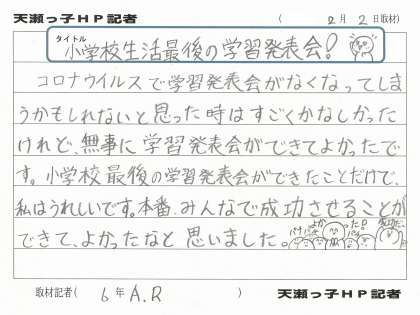 天瀬っ子ＨＰ記者 （ 2月 2日取材）
タイトル
小学校生活最後の学習発表会！
コロナウイルスで学習発表会がなくなってしま
うかもしれないと思った時はすごくかなしかった
けれど、無事に学習発表会ができてよかったで
す。小学校最後の学習発表会ができたことだけで、
私はうれしいです。本番、みんなで成功させることが
できて、よかったなと思いました。
取材記者（ 6年 A.R ） 天瀬っ子ＨＰ記者